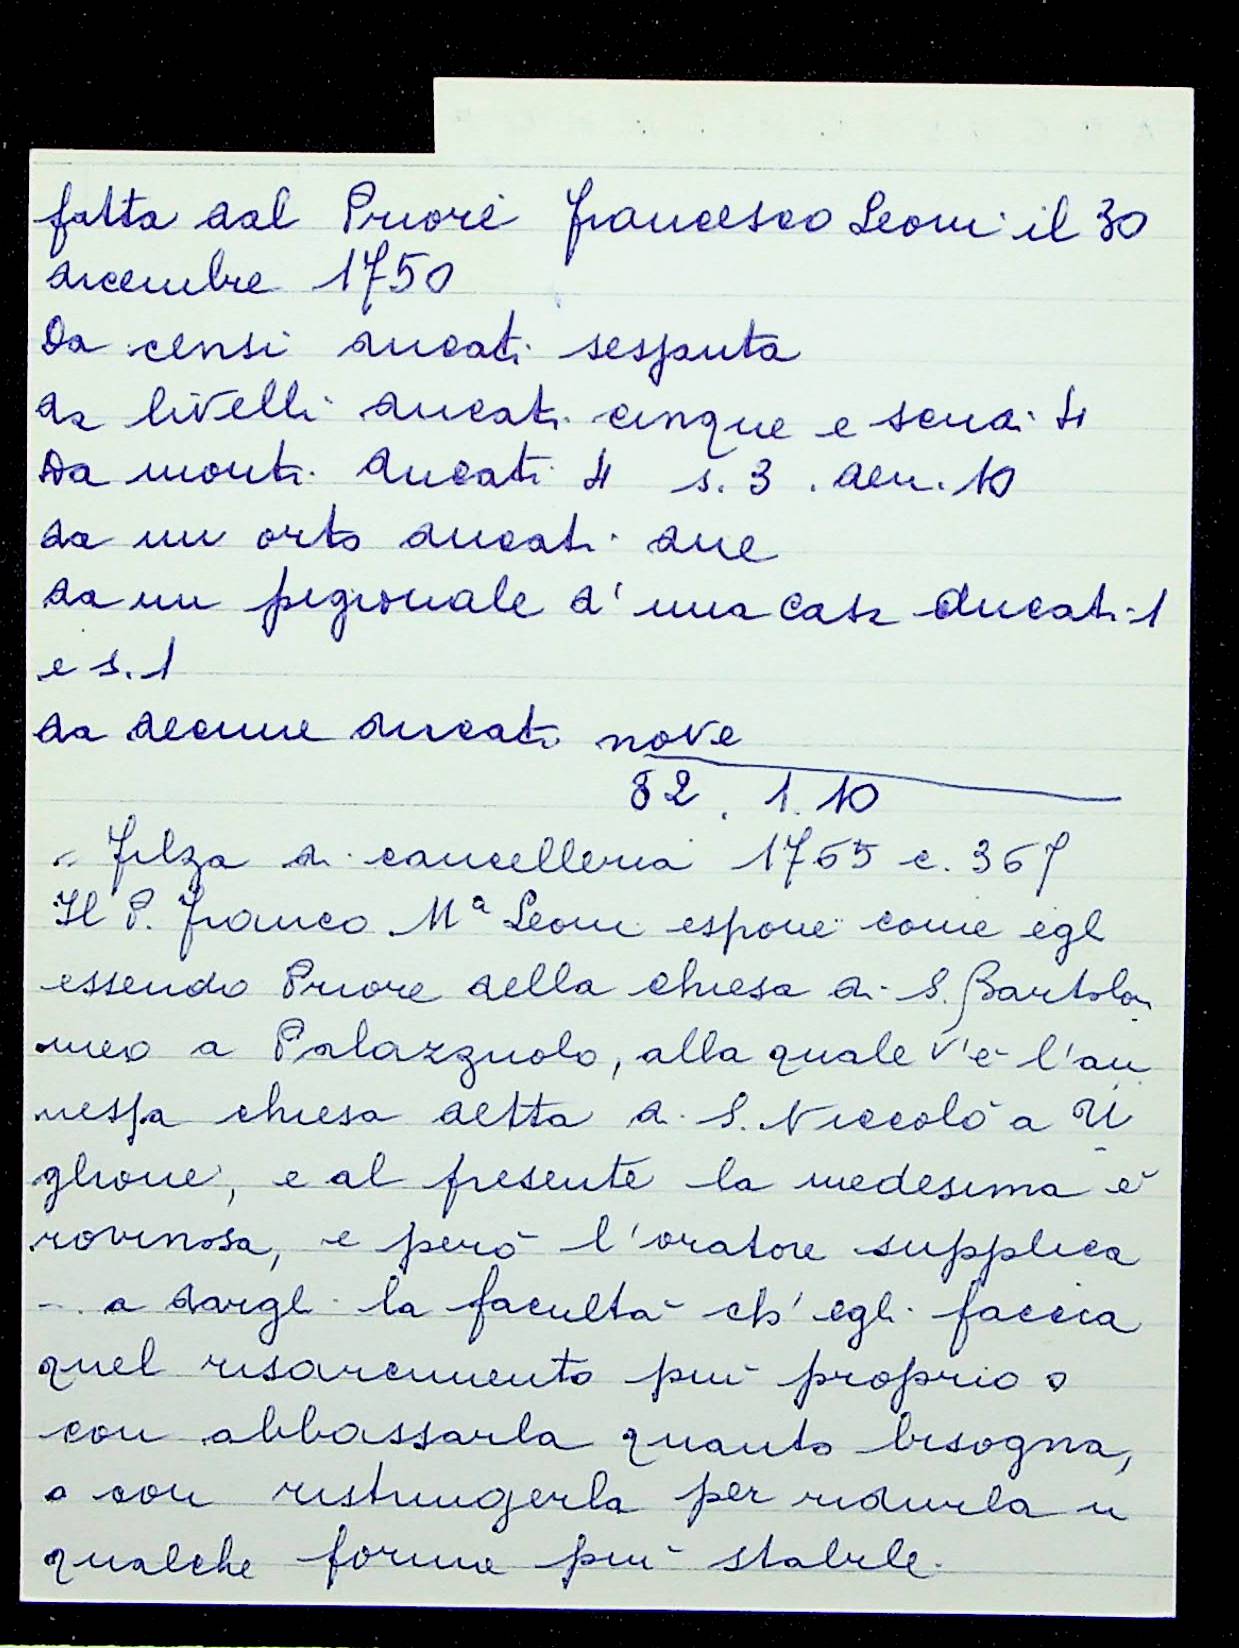 fatta dal Priore Francesco Leoni il 30
dicembre 1750
Da censi ducati sessanta
da livelli ducati cinque e scudi 4
Da monti ducati 4 s. 3. den. 10
da un orto ducati due
da un pigionale d'una casa ducati 1
e s. 1
da decime ducati nove
82. 1. 10
" Filza di cancelleria 1765 c. 367
Il P. Franco Mª Leoni espone come egli
essendo Priore della chiesa di S. Bartolom
meo a Palazzuolo, alla quale v'è l'an
nessa chiesa detta di S. Niccolò a U
glione, e al presente la medesima è
rovinosa, e però l'oratore supplica
... a dargli la facultà ch'egli faccia
quel risarcimento più proprio o
con abbassarla quanto bisogna,
o con ristringerla per ridurla in
qualche forma più stabile.